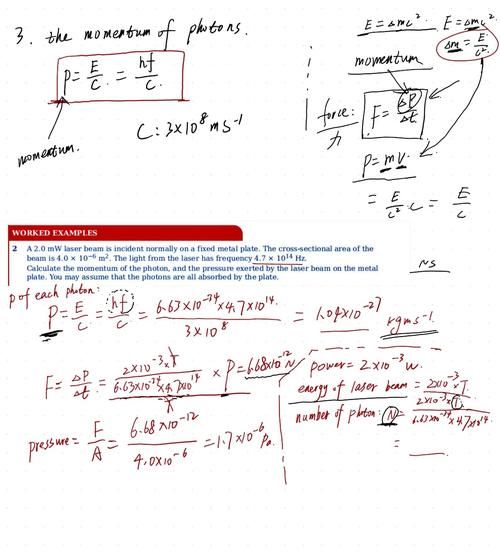 3. the momentum of photons.
P = E/C = hf/C
momentum.
C: 3×10⁸ ms⁻¹
E = Δmc². E = Δmc².
Δm = E/c².
momentum
force: F = ΔP/Δt
P = mv.
= E/c² · c = E/c
WORKED EXAMPLES
2 A 2.0 mW laser beam is incident normally on a fixed metal plate. The cross-sectional area of the
beam is 4.0 × 10⁻⁶ m². The light from the laser has frequency 4.7 × 10¹⁴ Hz.
Calculate the momentum of the photon, and the pressure exerted by the laser beam on the metal
plate. You may assume that the photons are all absorbed by the plate.
NS
P of each photon:
P = E/C = hf/C = 6.63×10⁻³⁴×4.7×10¹⁴/3×10⁸ = 1.04×10⁻²⁷ kgms⁻¹
F = ΔP/Δt = 2×10⁻³×T/6.63×10⁻³⁴×4.7×10¹⁴/T × P = 6.68×10⁻¹² N
pressure = F/A = 6.68×10⁻¹²/4.0×10⁻⁶ = 1.7×10⁻⁶ Pa.
power = 2×10⁻³ w.
energy of laser beam = 2×10⁻³ × T.
number of photon: N = 2×10⁻³×T/6.63×10⁻³⁴×4.7×10¹⁴
=